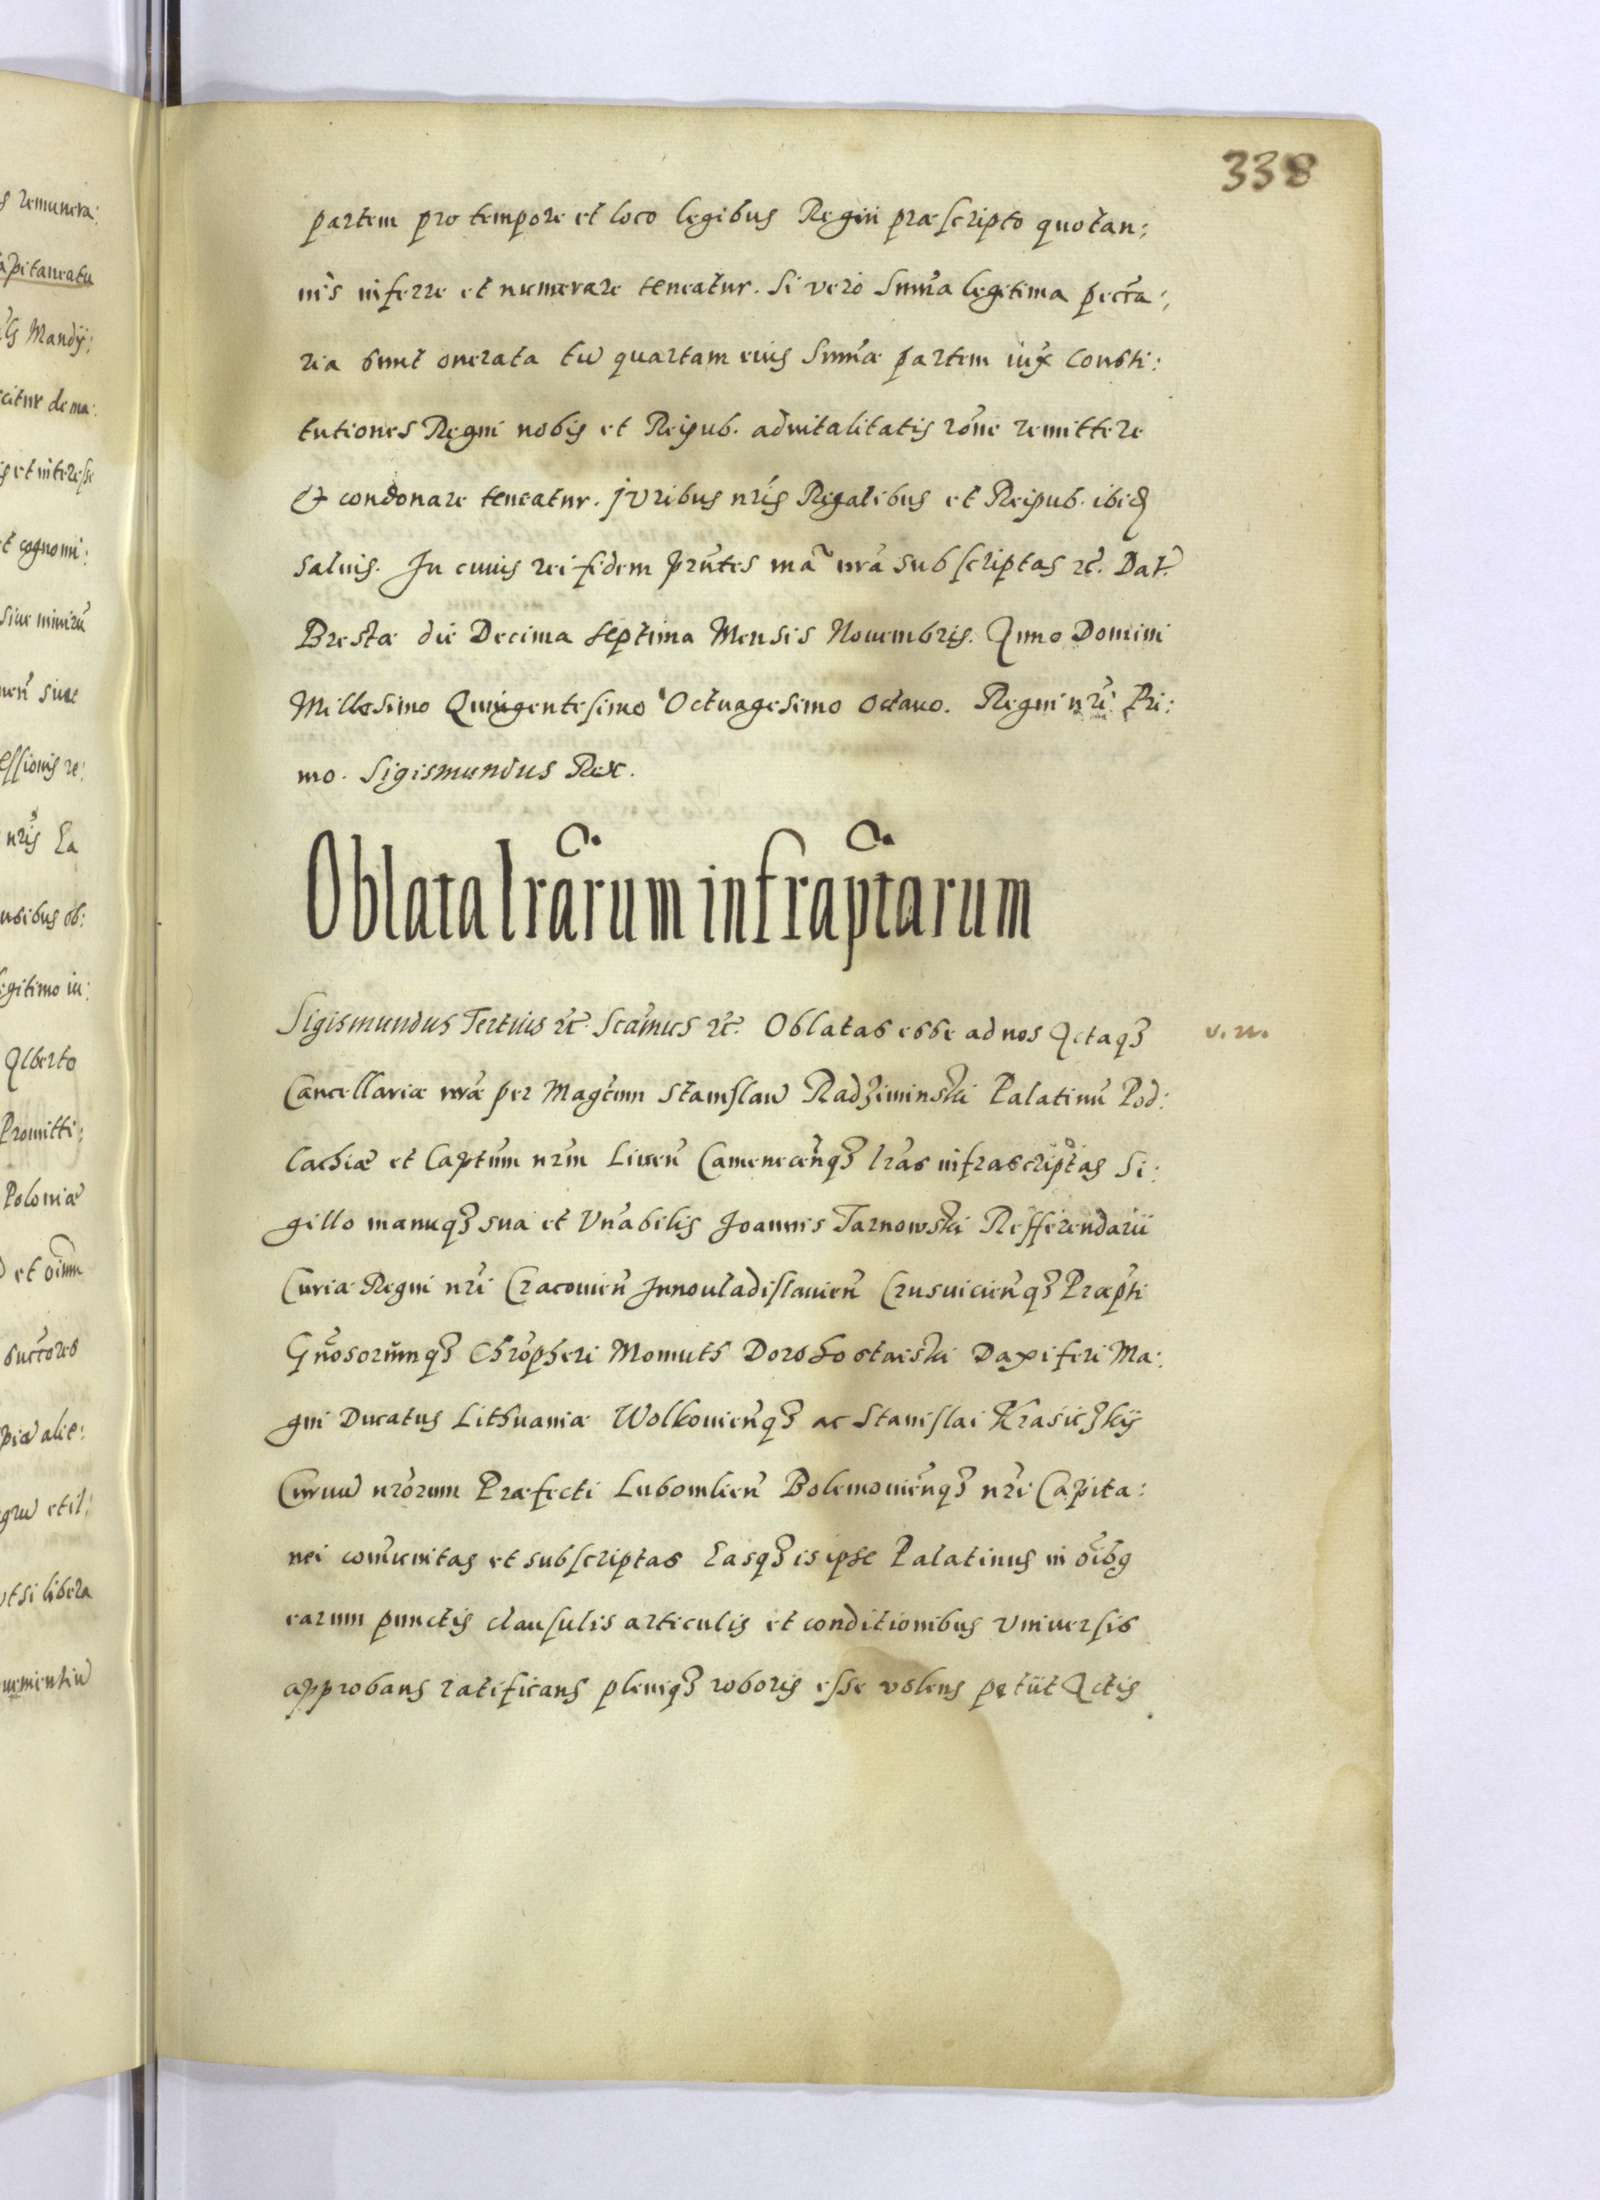 338
partem pro tempore et loco legibus Regni præscripto quotan:
nis inferre et numerare teneatur. Si vero Sum̃a legitima pecc̃a:
ria sunt onerata tũ quartam eius Sum̃æ partem iux̃ Consti:
tutiones Regni nobis et Reipub. aduitalitatis rõne remittere
et condonare teneatur. Juribus nris̃ Regalibus et Reipub. ibid
saluis. In cuius rei fidem prñtes mã nrã subscriptas &c. Dat.
Brestæ die Decima septima Mensis Nouembris. Anno Domini
Millesimo Quingentesimo Octuagesimo octauo. Regni nrĩ Pri:
mo. Sigismundus Rex.
Oblata lrãrum infrap̃tarum
Sigismundus Tertius &c. Scãmus &c. Oblatas esse ad nos Actaq3 v. n.
Cancellariæ nrã per Magc̃um Stanislaũ Radziminski Palatinũ Pod:
lachiæ et Captũm nrũm Liueñ Camenecenq̃3 lrãs infrascriptas Si:
gillo manuq3 sua et Vnãbilis Joannis Tarnowski Refferendarii
Curiæ Regni nrĩ Cracouieñ Innouladislauieñ Crusuicieñq3 Præpti
Gñosorumq3 Chrõpheri Momuth Dorohostaiski Dapiferi Ma:
gni Ducatus Lithuaniæ Wolkouieñq3 ac Stanislai Krasiczkij
Curiũ nrõrum Præfecti Lubomlieñ Bolemouieñq3 nrĩ Capita:
nei com̃unitas et subscriptas Easq3 is ipse Palatinus in oĩbg
earum punctis clausulis articulis et conditionibus vniuersis
approbans ratificans pleniq3 roboris esse volens petiit Actis
s remunera:
apitaneatu
Mandij:
citur de ma:
is et interesse
t cognomi:
siue nimirũ
neñ siue
essionis re:
nris̃ Ea
usibus ob:
egitimo iu:
Alberto
Promitti:
Poloniæ
et oĩum
succ̃ores
et il:
vt si libera